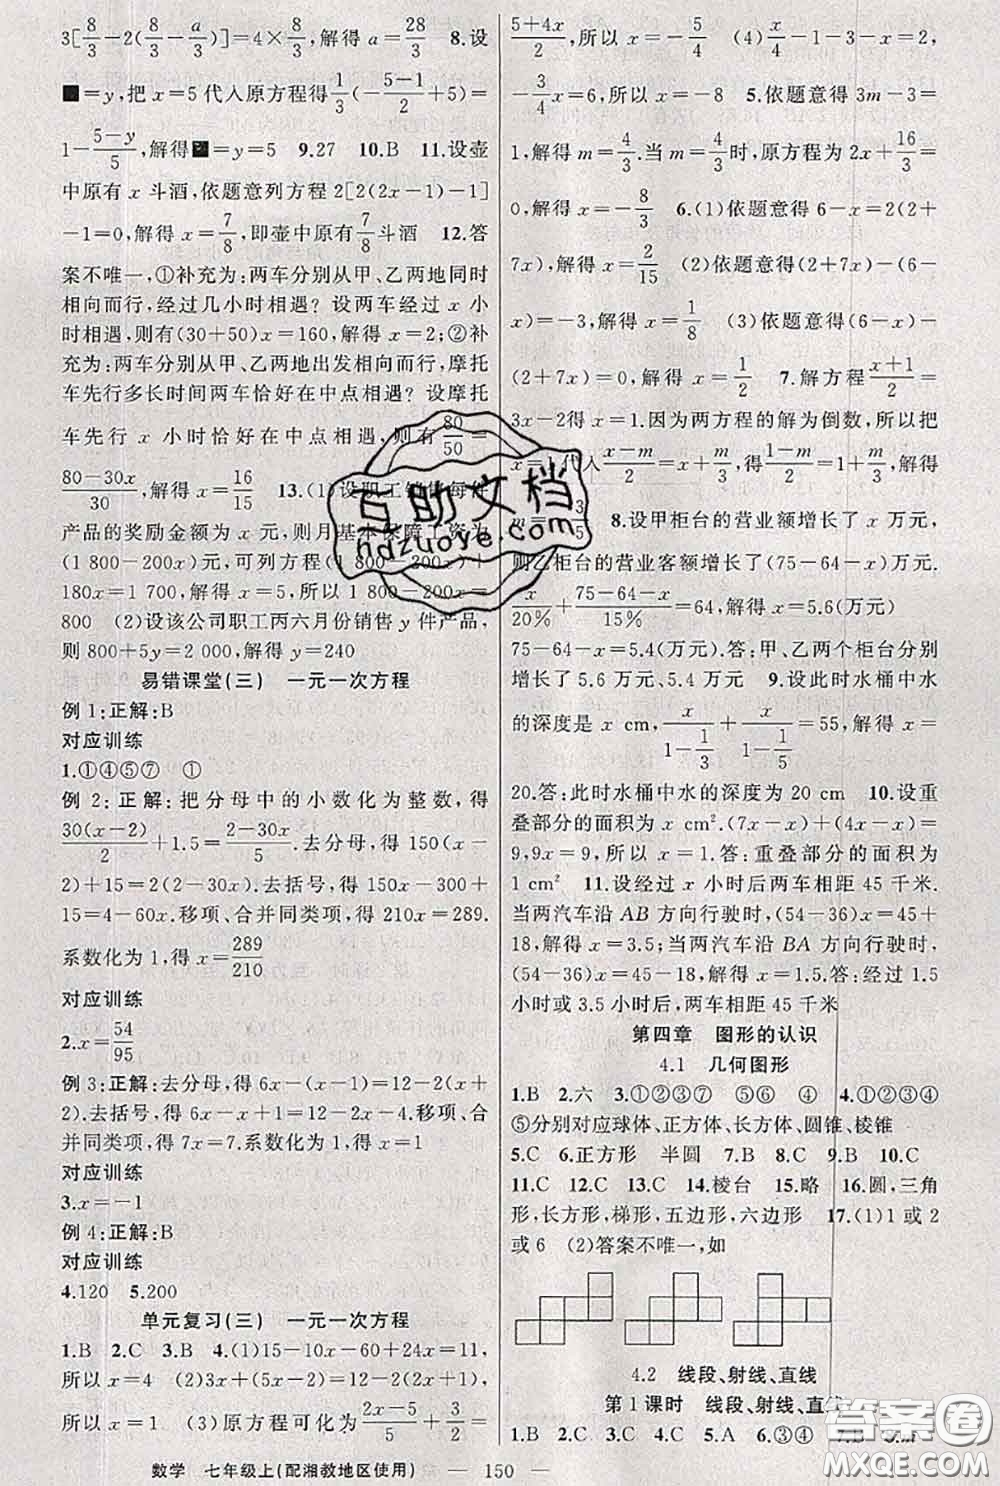 3[8/3-2(8/3-a/3)]=4×8/3,解得 a=28/3  8.设
■=y,把 x=5 代入原方程得 1/3(-(5-1)/2+5)=
1-(5-y)/5,解得■=y=5  9.27  10.B  11.设壶
中原有 x 斗酒,依题意列方程 2[2(2x-1)-1]
-1=0,解得 x=7/8,即壶中原有 7/8 斗酒  12.答
案不唯一,①补充为:两车分别从甲、乙两地同时
相向而行,经过几小时相遇? 设两车经过 x 小
时相遇,则有(30+50)x=160,解得 x=2;②补
充为:两车分别从甲、乙两地出发相向而行,摩托
车先行多长时间两车恰好在中点相遇? 设摩托
车先行 x 小时恰好在中点相遇,则有 80/50=
(80-30x)/30,解得 x=16/15  13.(1)设职工销售每件
产品的奖励金额为 x 元,则月基本保障工资为
(1 800-200x)元,可列方程(1 800-200x)+
180x=1 700,解得 x=5,所以 1 800-200x=
800  (2)设该公司职工丙六月份销售 y 件产品,
则 800+5y=2 000,解得 y=240
易错课堂(三)  一元一次方程
例 1:正解:B
对应训练
1.①④⑤⑦  ①
例 2:正解:把分母中的小数化为整数,得
30(x-2)/2+1.5=(2-30x)/5.去分母,得 150(x-
2)+15=4-60x.去括号,得 150x-300+
15=4-60x.移项、合并同类项,得 210x=289.
系数化为 1,得 x=289/210
对应训练
2.x=54/95
例 3:正解:去分母,得 6x-(x-1)=12-2(x+
2).去括号,得 6x-x+1=12-2x-4.移项、合
并同类项,得 7x=7.系数化为 1,得 x=1
对应训练
3.x=-1
例 4:正解:B
对应训练
4.120  5.200
单元复习(三)  一元一次方程
1.B  2.C  3.B  4.(1)15-10x-60+24x=11,
所以 x=4  (2)3x-6-12=2+4x-24x,
所以 x=1  (3)原方程可化为 (2x-5)/5+3/2=
(5+4x)/2,所以 x=-5/4  (4)x/4-1-3-x=2,
-3/4x=6,所以 x=-8  5.依题意得 3m-3=
1,解得 m=4/3.当 m=4/3时,原方程为 2x+16/3=
0,解得 x=-8/3  6.(1)依题意得 6-x=2(2+
7x),解得 x=2/15  (2)依题意得(2+7x)-(6-
x)=-3,解得 x=1/8  (3)依题意得(6-x)-
(2+7x)=0,解得 x=1/2  7.解方程(x+1)/2=
3x-2得 x=1.因为两方程的解为倒数,所以把
x=1 代入(x-m)/2=x+m/3,得(1-m)/2=1+m/3,解得
m=-3/5  8.设甲柜台的营业额增长了 x 万元,
则乙柜台的营业客额增长了(75-64-x)万元.
x/20%+(75-64-x)/15%=64,解得 x=5.6(万元)
75-64-x=5.4(万元).答:甲、乙两个柜台分别
增长了 5.6 万元、5.4 万元  9.设此时水桶中水
的深度是 x cm,x/(1-1/3)+x/(1-1/5)=55,解得 x=
20.答:此时水桶中水的深度为 20 cm  10.设重
叠部分的面积为 x cm².(7x-x)+(4x-x)=
9,9x=9,所以 x=1.答:重叠部分的面积为
1 cm²  11.设经过 x 小时后两车相距 45 千米.
当两汽车沿 AB 方向行驶时,(54-36)x=45+
18,解得 x=3.5;当两汽车沿 BA 方向行驶时,
(54-36)x=45-18,解得 x=1.5.答:经过 1.5
小时或 3.5 小时后,两车相距 45 千米
第四章  图形的认识
4.1  几何图形
1.B  2.六  3.①②③⑦  ⑤⑥  ④  4.①②③④
⑤分别对应球体、正方体、长方体、圆锥、棱锥
5.C  6.正方形  半圆  7.B  8.C  9.B  10.C
11.C  12.C  13.C  14.棱台  15.略  16.圆,三角
形,长方形,梯形,五边形,六边形  17.(1)1 或 2
或 6  (2)答案不唯一,如
4.2  线段、射线、直线
第 1 课时  线段、射线、直线
1.D  2.B  3.C  4.C  5.C  6.③④  7.B
数学  七年级上(配湘教地区使用)  — 150 —
互助文档
hdzuoye.com
答案圈
MXQE.COM